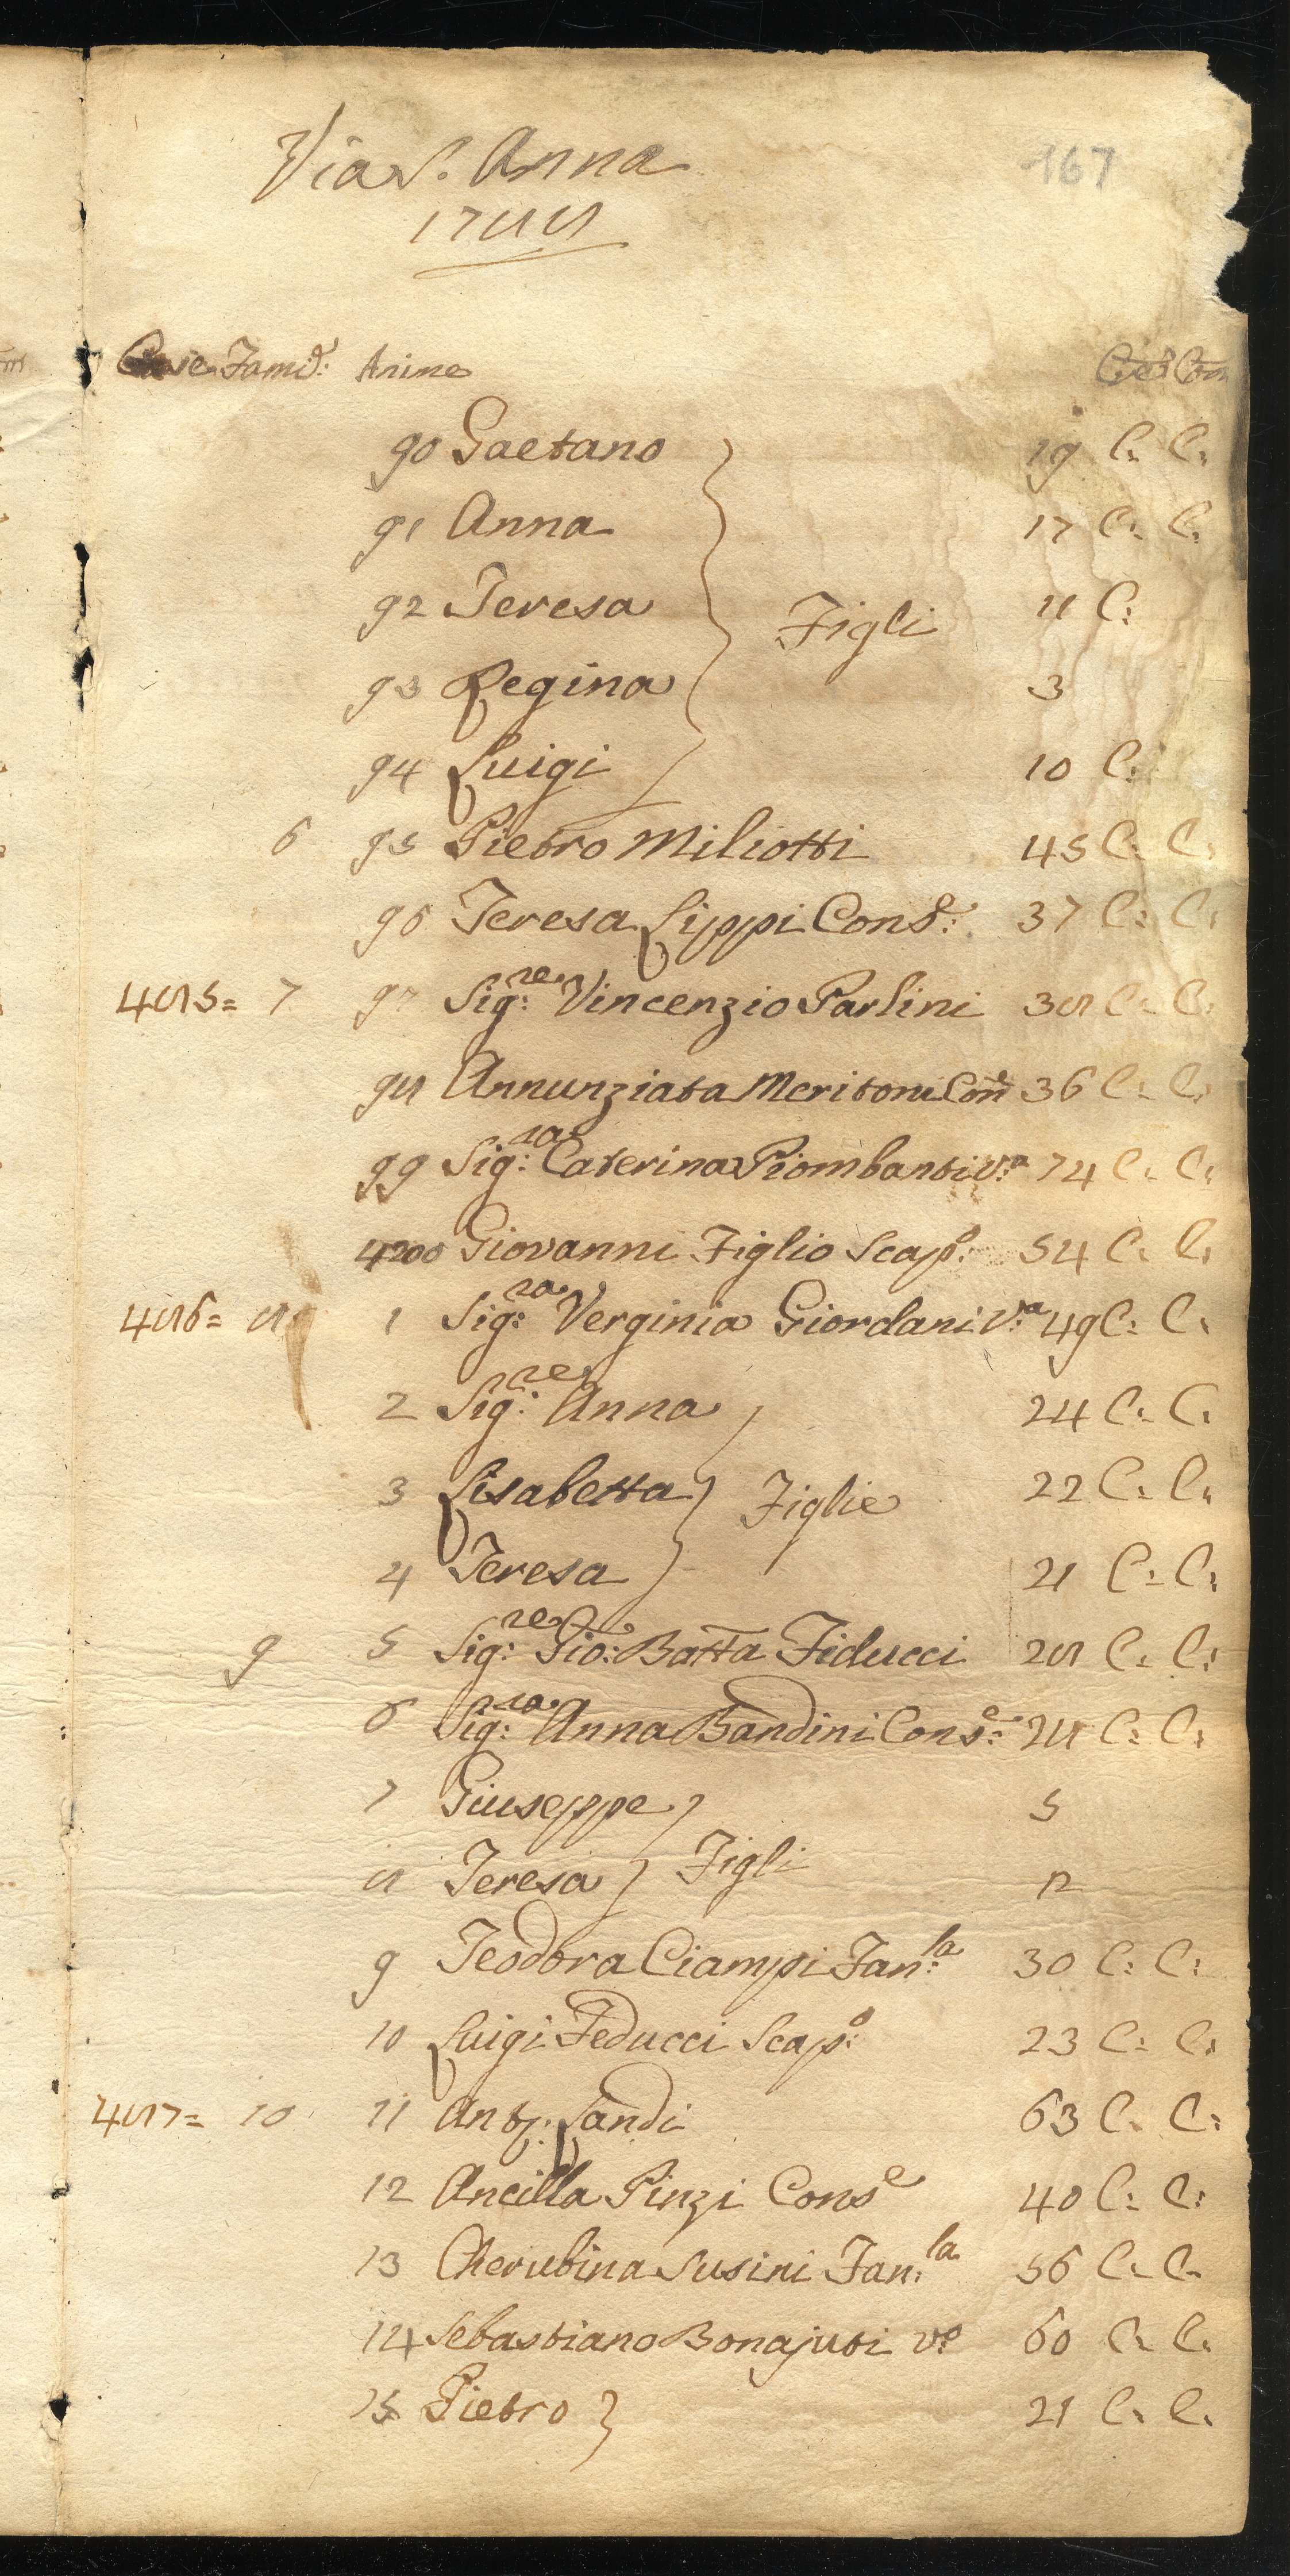 Via S. Anna 167
1788
Case Famig: Anime Cres Com
90 Gaetano 19 C: C:
91 Anna 17 C: C:
92 Teresa Figli 11 C:
93 Regina 3
94 Luigi 10 C:
6 95 Pietro Miliotti 45 C: C:
96 Teresa Lippi Cons.e 37 C: C:
485= 7 97 Sig:re Vincenzio Parlini 38 C: C:
98 Annunziata Meritoni Con.e 36 C: C:
99 Sig:ra Caterina Piombanti v:a 74 C: C:
4200 Giovanni Figlio Scap:o 54 C: C:
486= 8 1 Sig:ra Verginia Giordani v:a 49 C: C:
2 Sig:re Anna 24 C: C:
3 Lisabetta Figlie 22 C: C:
4 Teresa 21 C: C:
9 5 Sig:re Gio: Batta Fiducci 28 C: C:
6 Sig:ra Anna Bandini Cons:e 28 C: C:
7 Giuseppe 5
8 Teresa Figli 12
9 Teodora Ciampi Fan:la 30 C: C:
10 Luigi Feducci Scap:o 23 C: C:
487= 10 11 Ant.o Landi 63 C: C:
12 Ancilla Pinzi Cons.e 40 C: C:
13 Cherubina Susini Fan:la 56 C: C:
14 Sebastiano Bonajuti v:o 60 C: C:
15 Pietro 21 C: C: